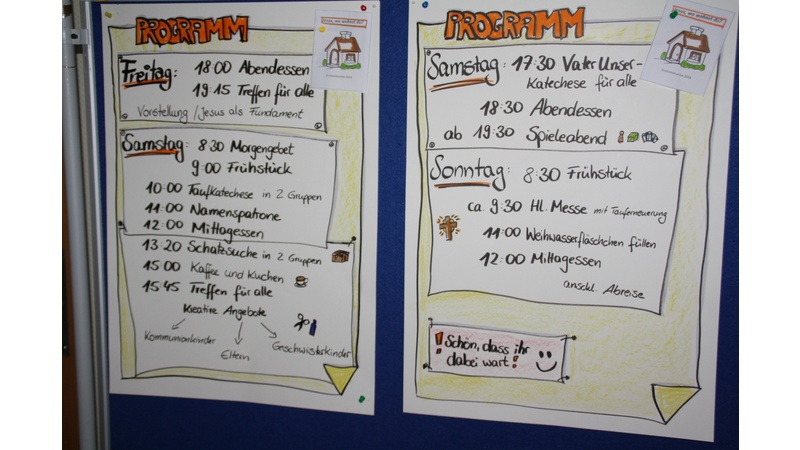 PROGRAMM
Freitag: 18:00 Abendessen
19:15 Treffen für alle
Vorstellung / Jesus als Fundament
Samstag: 8:30 Morgengebet
9:00 Frühstück
10:00 Taufkatechese in 2 Gruppen
11:00 Namenspatrone
12:00 Mittagessen
13:20 Schatzsuche in 2 Gruppen
15:00 Kaffee und Kuchen
15:45 Treffen für alle
Kreative Angebote
Kommunionkinder
Eltern
Geschwisterkinder
PROGRAMM
Samstag: 17:30 Vater Unser-
Katechese für alle
18:30 Abendessen
ab 19:30 Spieleabend
Sonntag: 8:30 Frühstück
ca. 9:30 Hl. Messe mit Tauferneuerung
11:00 Weihwasserfläschchen füllen
12:00 Mittagessen
anschl. Abreise
! Schön, dass ihr
dabei wart!